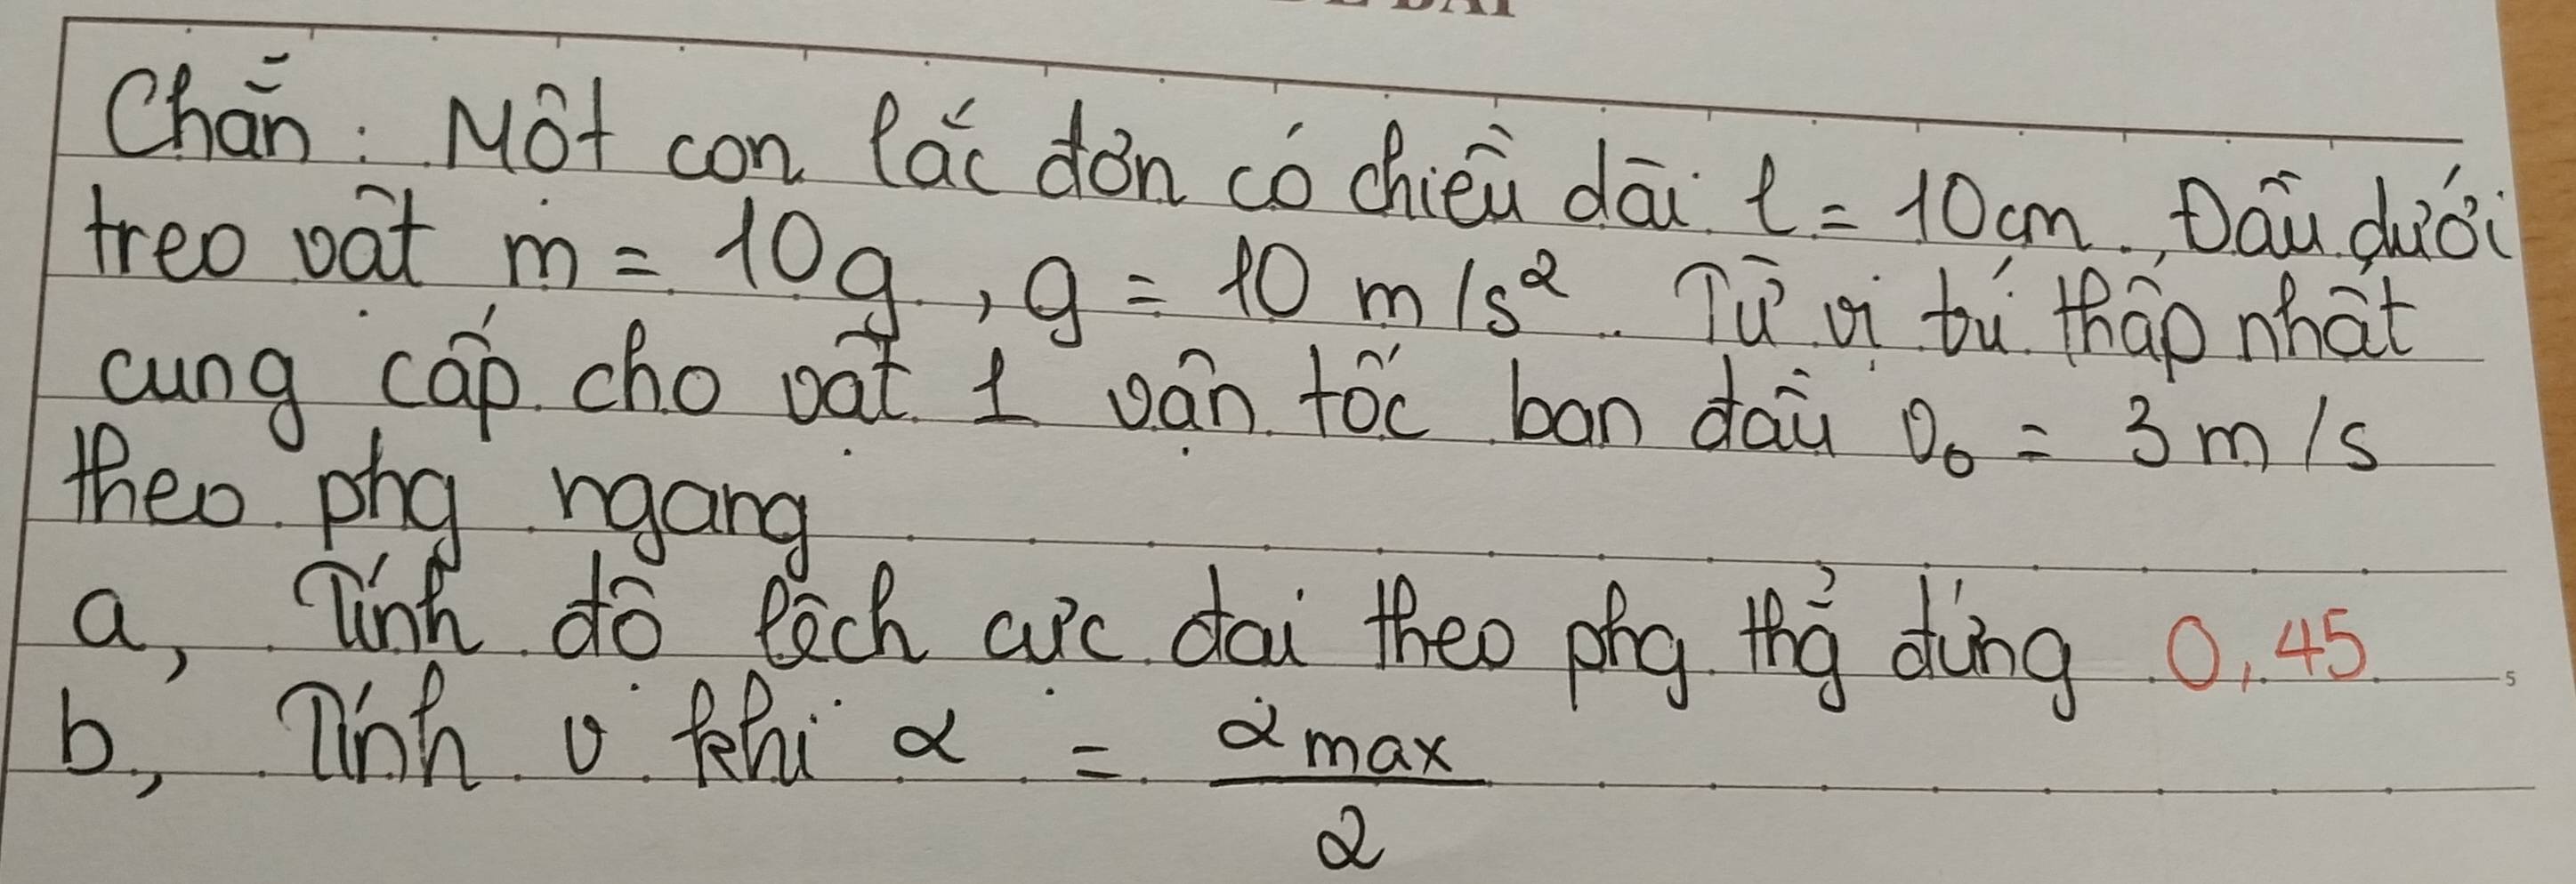 Chẵn: Một con lắc đơn có chiều dài l = 10cm. Đầu dưới
treo vật m = 10g, g = 10 m/s². Từ vị trí thấp nhất
cung cấp cho vật 1 vận tốc ban đầu v₀ = 3m/s
theo phg ngang
a, Tính độ lệch cực đại theo phg thg̉ đứng 0,45
b, Tính v khi α = α max / 2
5